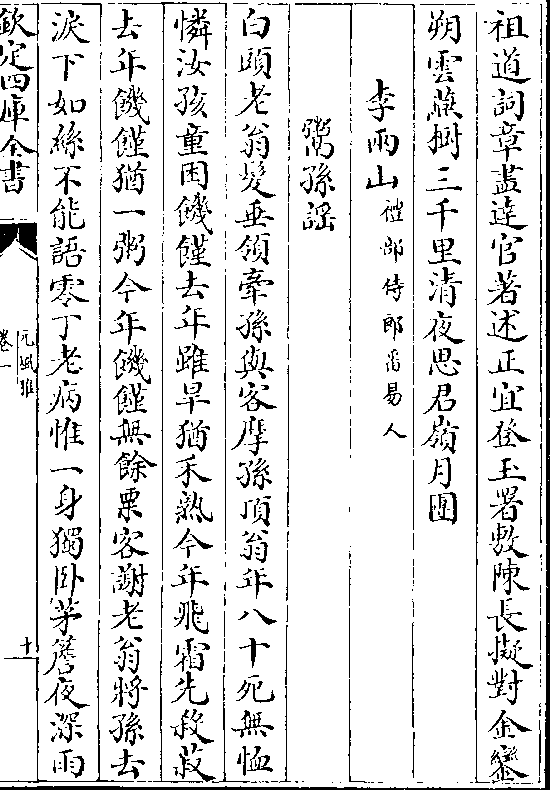 祖道詞章盡達官著述正宜登玉署敷陳長擬對金鑾
朔雲燕樹三千里清夜思君嶺月團
李雨山禮部侍郎番易人
鬻孫謡
白頭老翁髮垂領牽孫與客摩孫頂翁年八十死無恤
憐汝孩童困饑饉去年雖旱猶禾熟今年飛霜先殺菽
去年饑饉猶一粥今年饑饉無餘粟客謝老翁將孫去
淚下如絲不能語零丁老病惟一身獨卧茅簷夜深雨
欽定四庫全書
元風雅
卷一
十